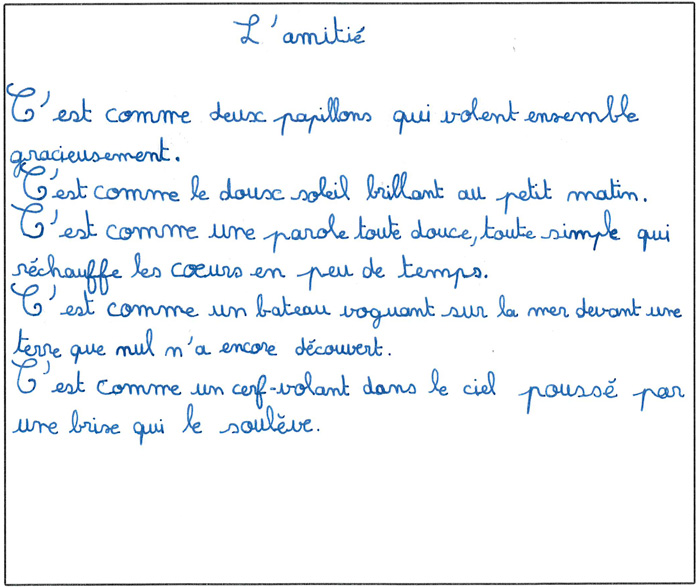 L'amitié
C'est comme deux papillons qui volent ensemble
gracieusement.
C'est comme le doux soleil brillant au petit matin.
C'est comme une parole toute douce, toute simple qui
réchauffe les cœurs en peu de temps.
C'est comme un bateau voguant sur la mer devant une
terre que nul n'a encore découvert.
C'est comme un cerf-volant dans le ciel poussé par
une brise qui le soulève.